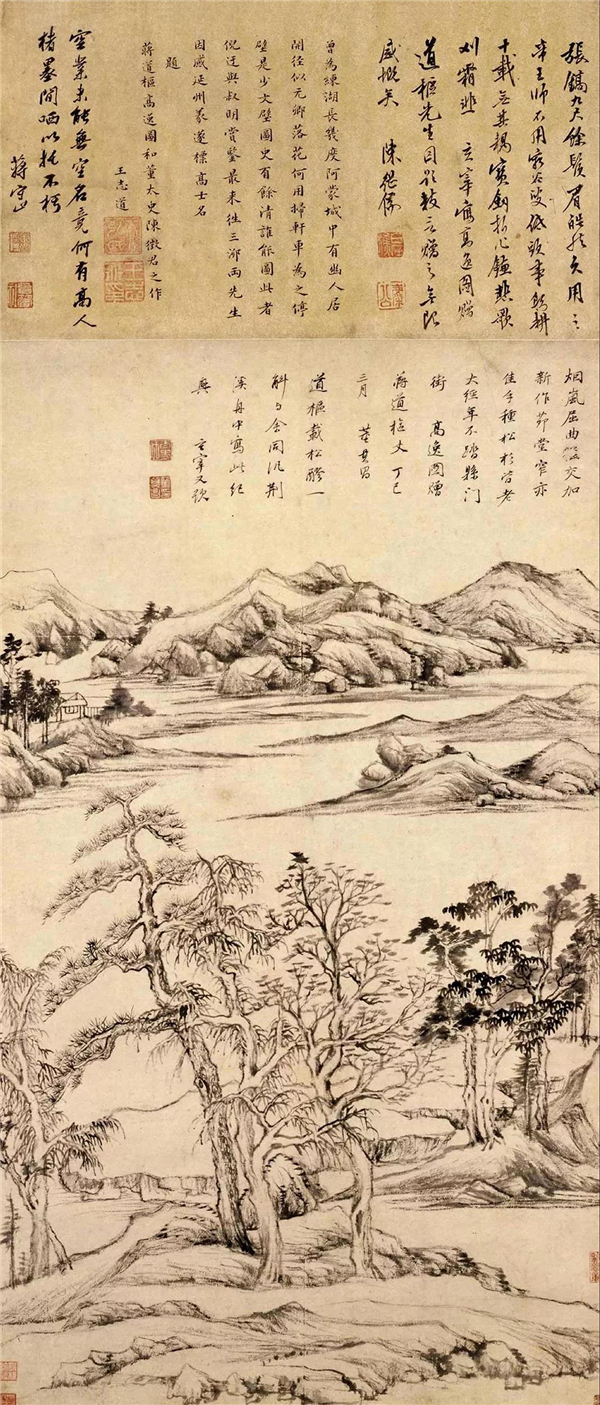 張鎬九尺餘鬚眉皓然久用之
王師不用窮谷叟低頭事鋤耕
十載寶劍折心悲歌
刈霜韭 玄宰寫高逸圖贈
道樞先生因題數言之無限
感慨矣 陳繼儒
曾為練湖長幾度阿蒙城中有幽人居
開徑似元卿落花何用掃軒車為之停
壁是少文壁圖史有餘清誰能圖此者
倪迂與叔明賞鑒最來往三泖兩先生
因感延州義遂標高士名
題
蔣道樞高逸圖和董太史陳徵君之作
王志道
空業未能無空名竟何有高人
楮墨間哂以托不朽
蔣守止
烟嵐屈曲徑交加
新作茆堂窄亦
佳手種松杉皆老
大經年不踏縣門
街 高逸圖贈
蔣道樞丈 丁巳
三月 董其昌
道樞載松醪一
斛與余同汎荊
溪舟中寫此紀
興 玄宰又識